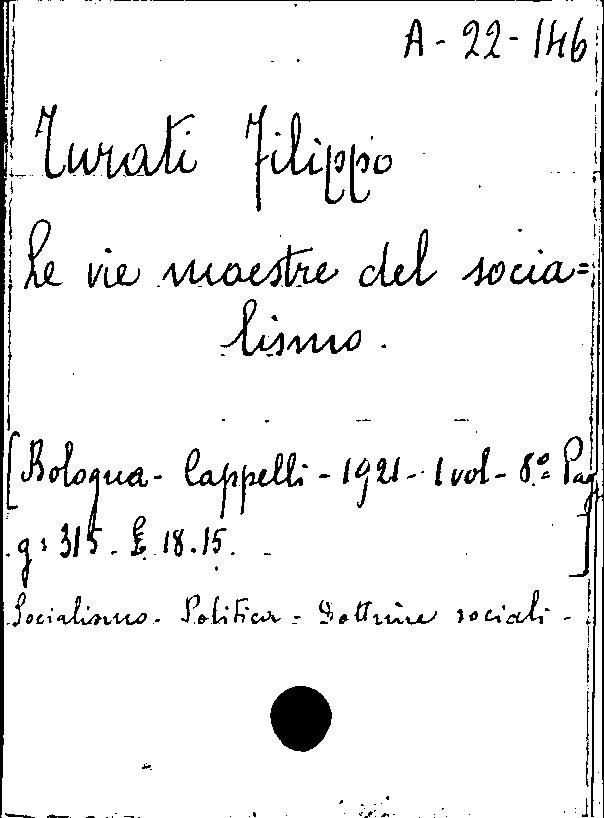 A-22-146
Turati Filippo
Le vie maestre del socia=
lismo.
[Bologna - Cappelli - 1921 - 1 vol - 8º = Pag
g: 315. £ 18.15.]
Socialismo - Politica - Dottrine sociali -